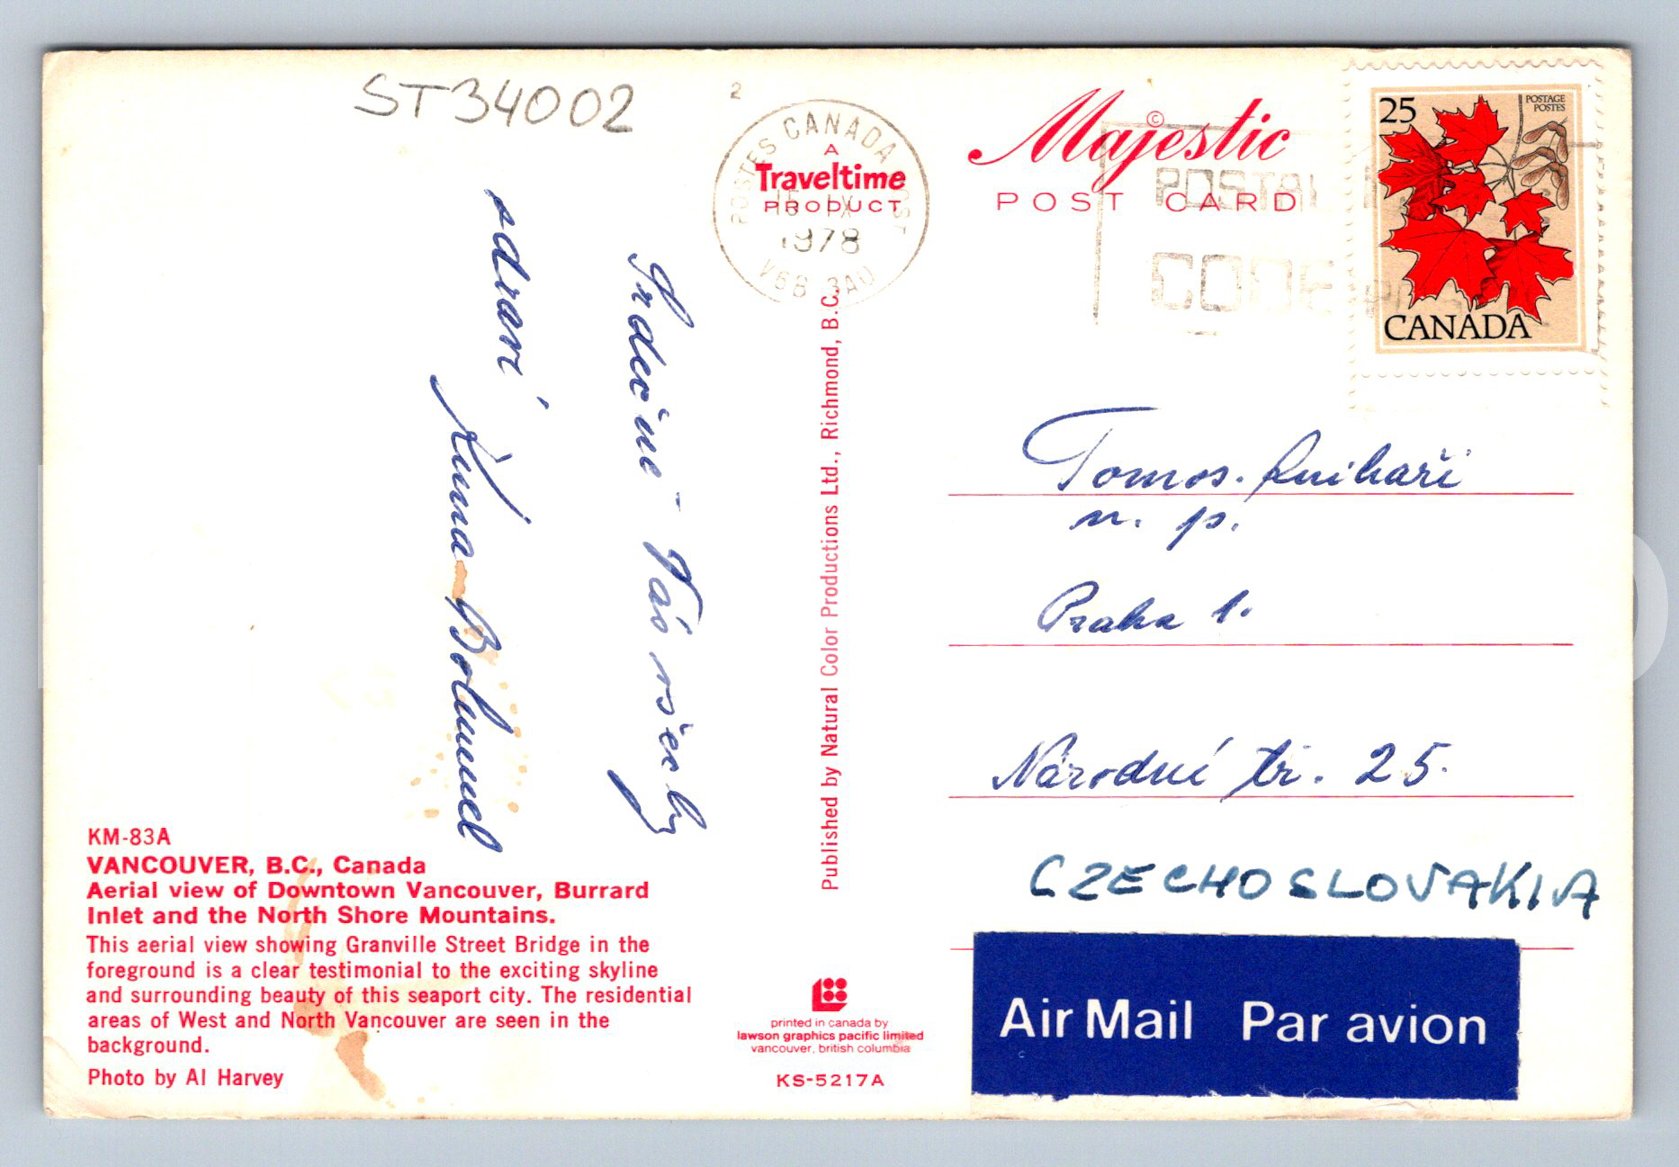 ST34002
2
POSTES CANADA POST
1978
V6B 3A0
A
Traveltime
PRODUCT
Majestic
©
POST CARD
POSTAL
CODE
25
POSTAGE
POSTES
CANADA
Srdečně Vás všechny
zdraví
Published by Natural Color Productions Ltd., Richmond, B.C.
Tomos. Knihaři
n. p.
Praha 1.
Národní tř. 25.
CZECHOSLOVAKIA
Air Mail Par avion
KM-83A
VANCOUVER, B.C., Canada
Aerial view of Downtown Vancouver, Burrard
Inlet and the North Shore Mountains.
This aerial view showing Granville Street Bridge in the
foreground is a clear testimonial to the exciting skyline
and surrounding beauty of this seaport city. The residential
areas of West and North Vancouver are seen in the
background.
Photo by Al Harvey
printed in canada by
lawson graphics pacific limited
vancouver, british columbia
KS-5217A